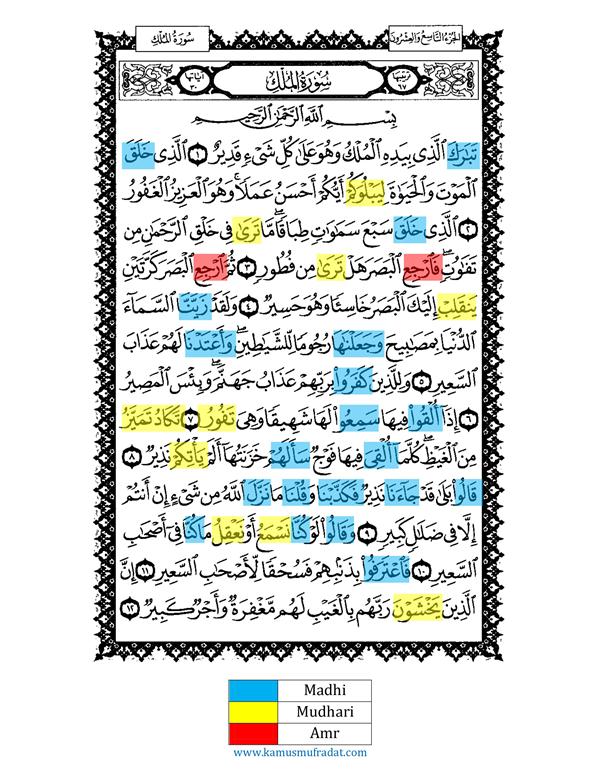 الجزء التاسع والعشرون
سورة الملك
ترتيبها ٦٧
سُورَةُ المُلْكِ
آياتها ٣٠
بِسْمِ ٱللَّهِ ٱلرَّحْمَٰنِ ٱلرَّحِيمِ
تَبَٰرَكَ ٱلَّذِى بِيَدِهِ ٱلْمُلْكُ وَهُوَ عَلَىٰ كُلِّ شَىْءٍ قَدِيرٌ ١ ٱلَّذِى خَلَقَ
ٱلْمَوْتَ وَٱلْحَيَوٰةَ لِيَبْلُوَكُمْ أَيُّكُمْ أَحْسَنُ عَمَلًا ۚ وَهُوَ ٱلْعَزِيزُ ٱلْغَفُورُ
٢ ٱلَّذِى خَلَقَ سَبْعَ سَمَٰوَٰتٍ طِبَاقًا ۖ مَّا تَرَىٰ فِى خَلْقِ ٱلرَّحْمَٰنِ مِن
تَفَٰوُتٍ ۖ فَٱرْجِعِ ٱلْبَصَرَ هَلْ تَرَىٰ مِن فُطُورٍ ٣ ثُمَّ ٱرْجِعِ ٱلْبَصَرَ كَرَّتَيْنِ
يَنقَلِبْ إِلَيْكَ ٱلْبَصَرُ خَاسِئًا وَهُوَ حَسِيرٌ ٤ وَلَقَدْ زَيَّنَّا ٱلسَّمَآءَ
ٱلدُّنْيَا بِمَصَٰبِيحَ وَجَعَلْنَٰهَا رُجُومًا لِّلشَّيَٰطِينِ ۖ وَأَعْتَدْنَا لَهُمْ عَذَابَ
ٱلسَّعِيرِ ٥ وَلِلَّذِينَ كَفَرُوا۟ بِرَبِّهِمْ عَذَابُ جَهَنَّمَ ۖ وَبِئْسَ ٱلْمَصِيرُ
٦ إِذَآ أُلْقُوا۟ فِيهَا سَمِعُوا۟ لَهَا شَهِيقًا وَهِىَ تَفُورُ ٧ تَكَادُ تَمَيَّزُ
مِنَ ٱلْغَيْظِ ۖ كُلَّمَآ أُلْقِىَ فِيهَا فَوْجٌ سَأَلَهُمْ خَزَنَتُهَآ أَلَمْ يَأْتِكُمْ نَذِيرٌ ٨
قَالُوا۟ بَلَىٰ قَدْ جَآءَنَا نَذِيرٌ فَكَذَّبْنَا وَقُلْنَا مَا نَزَّلَ ٱللَّهُ مِن شَىْءٍ إِنْ أَنتُمْ
إِلَّا فِى ضَلَٰلٍ كَبِيرٍ ٩ وَقَالُوا۟ لَوْ كُنَّا نَسْمَعُ أَوْ نَعْقِلُ مَا كُنَّا فِىٓ أَصْحَٰبِ
ٱلسَّعِيرِ ١٠ فَٱعْتَرَفُوا۟ بِذَنۢبِهِمْ فَسُحْقًا لِّأَصْحَٰبِ ٱلسَّعِيرِ ١١ إِنَّ
ٱلَّذِينَ يَخْشَوْنَ رَبَّهُم بِٱلْغَيْبِ لَهُم مَّغْفِرَةٌ وَأَجْرٌ كَبِيرٌ ١٢
Madhi
Mudhari
Amr
www.kamusmufradat.com